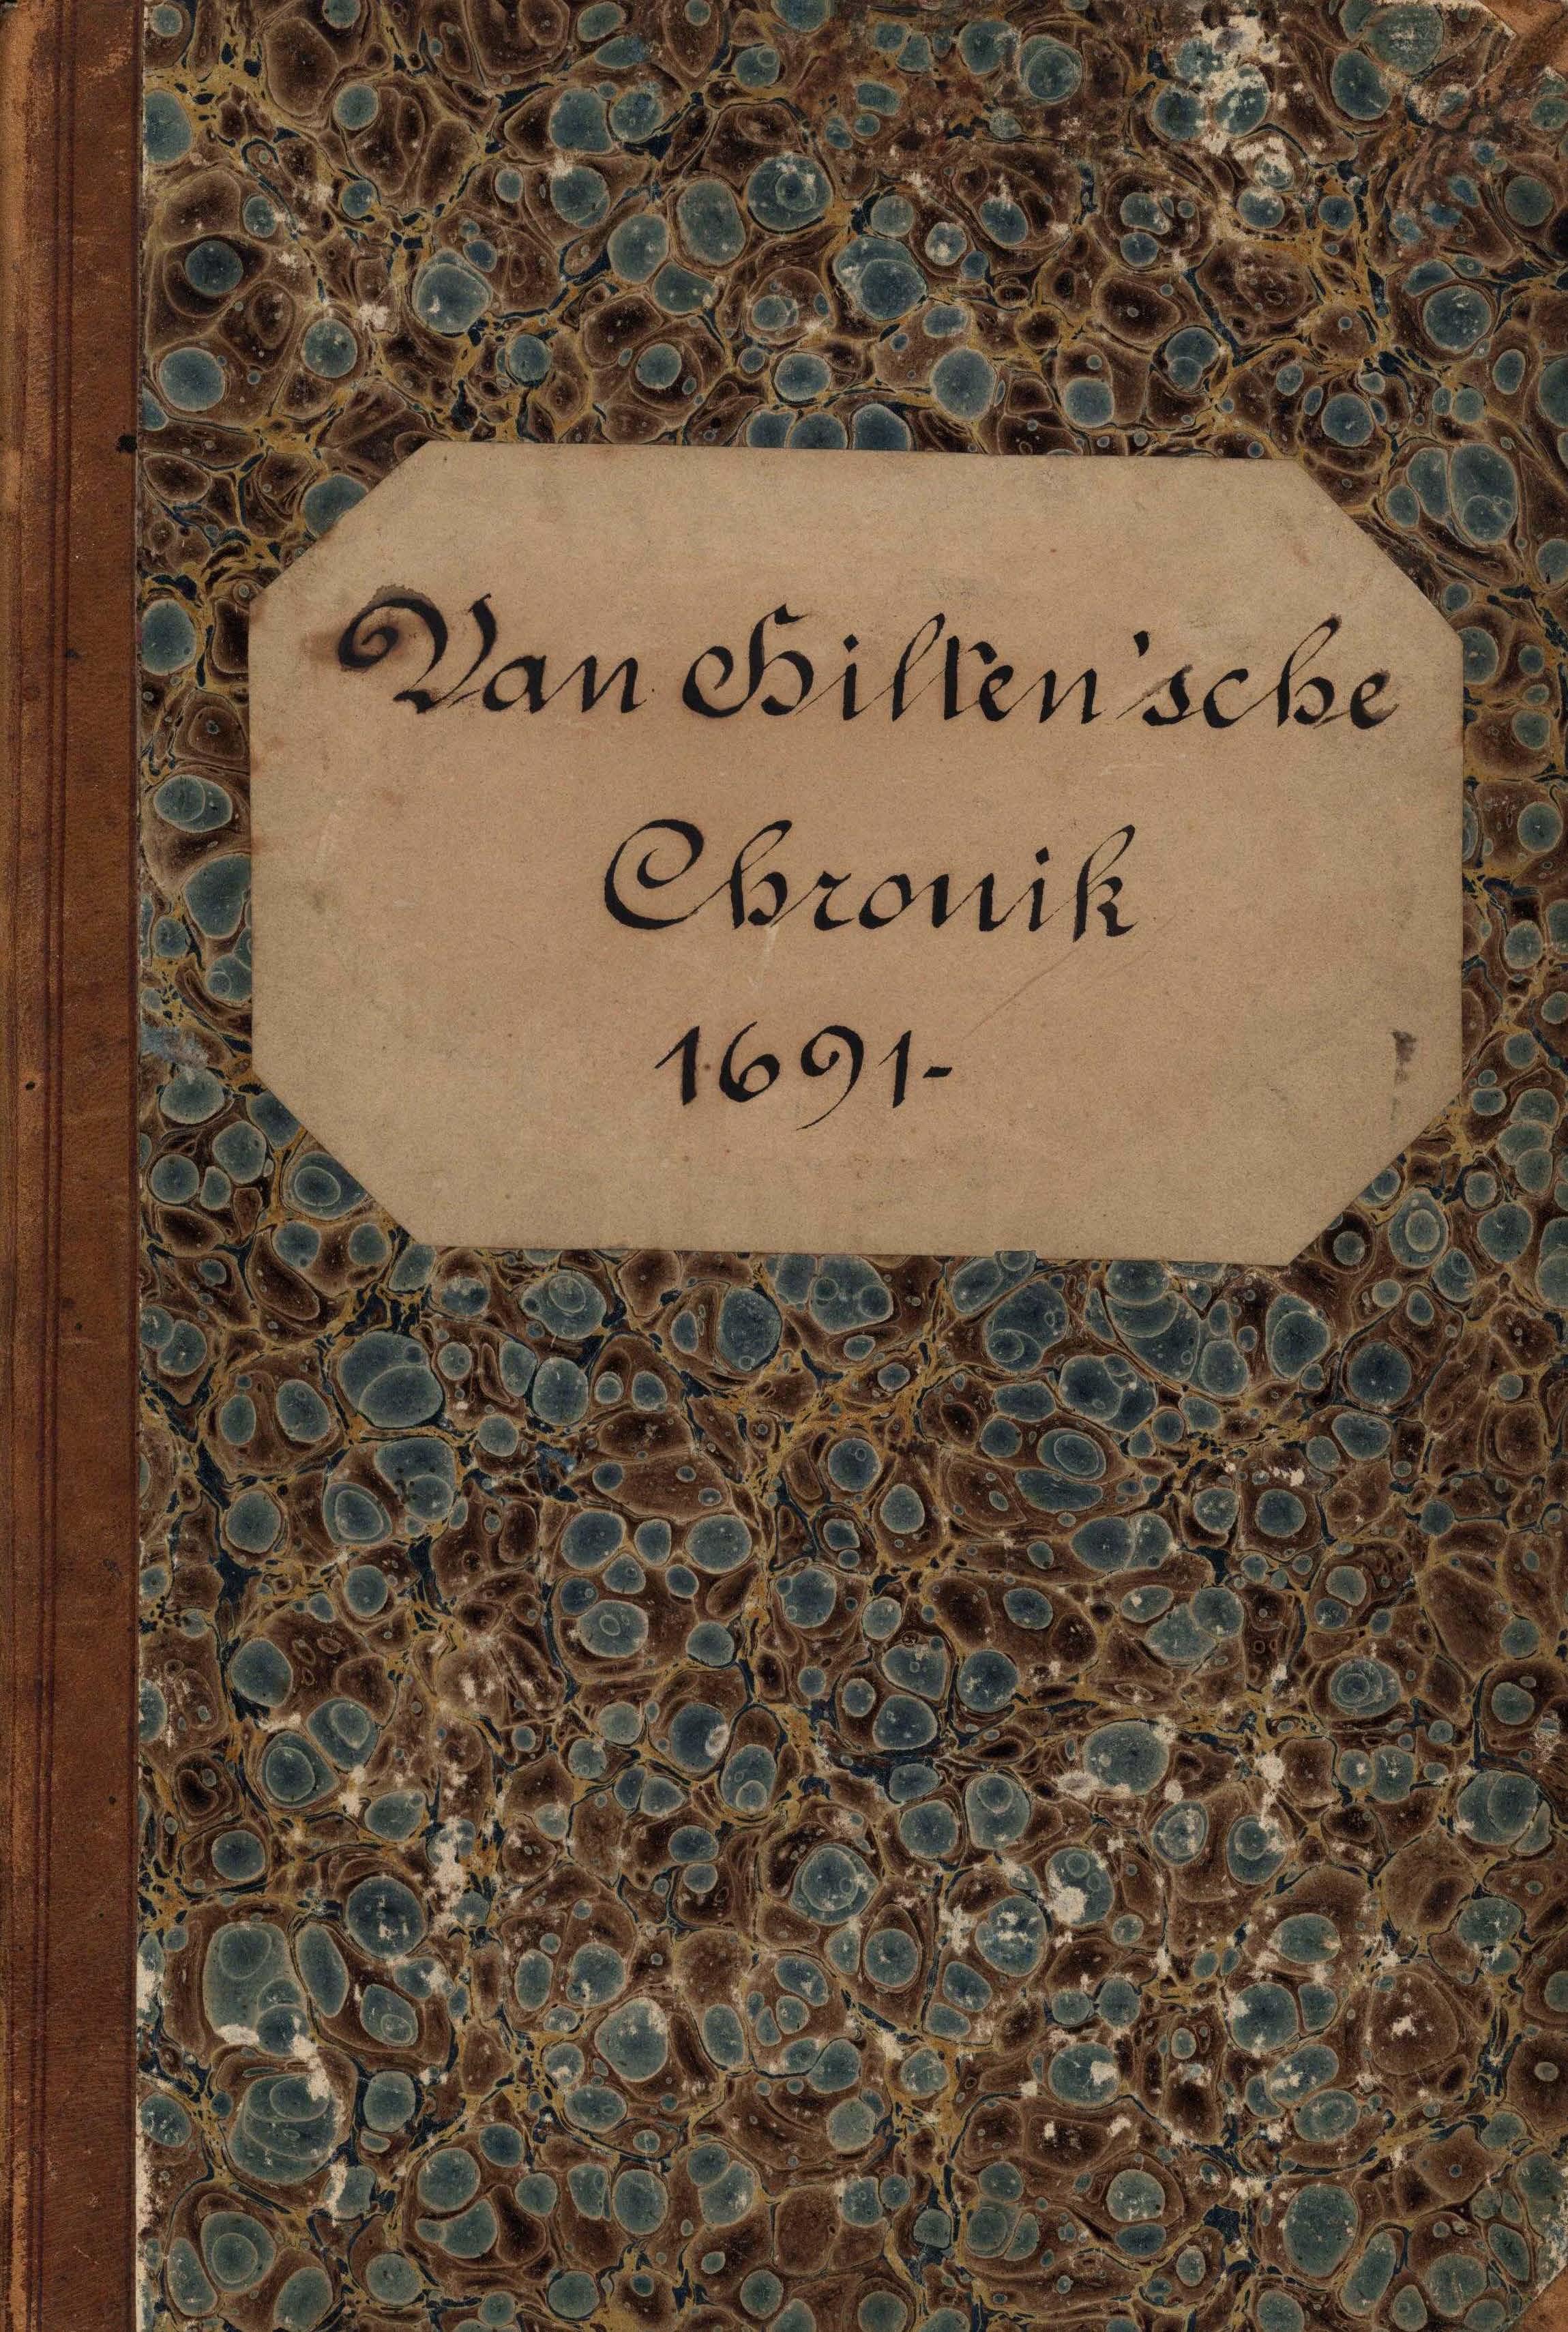 Van Hilten'sche
Chronik
1691-